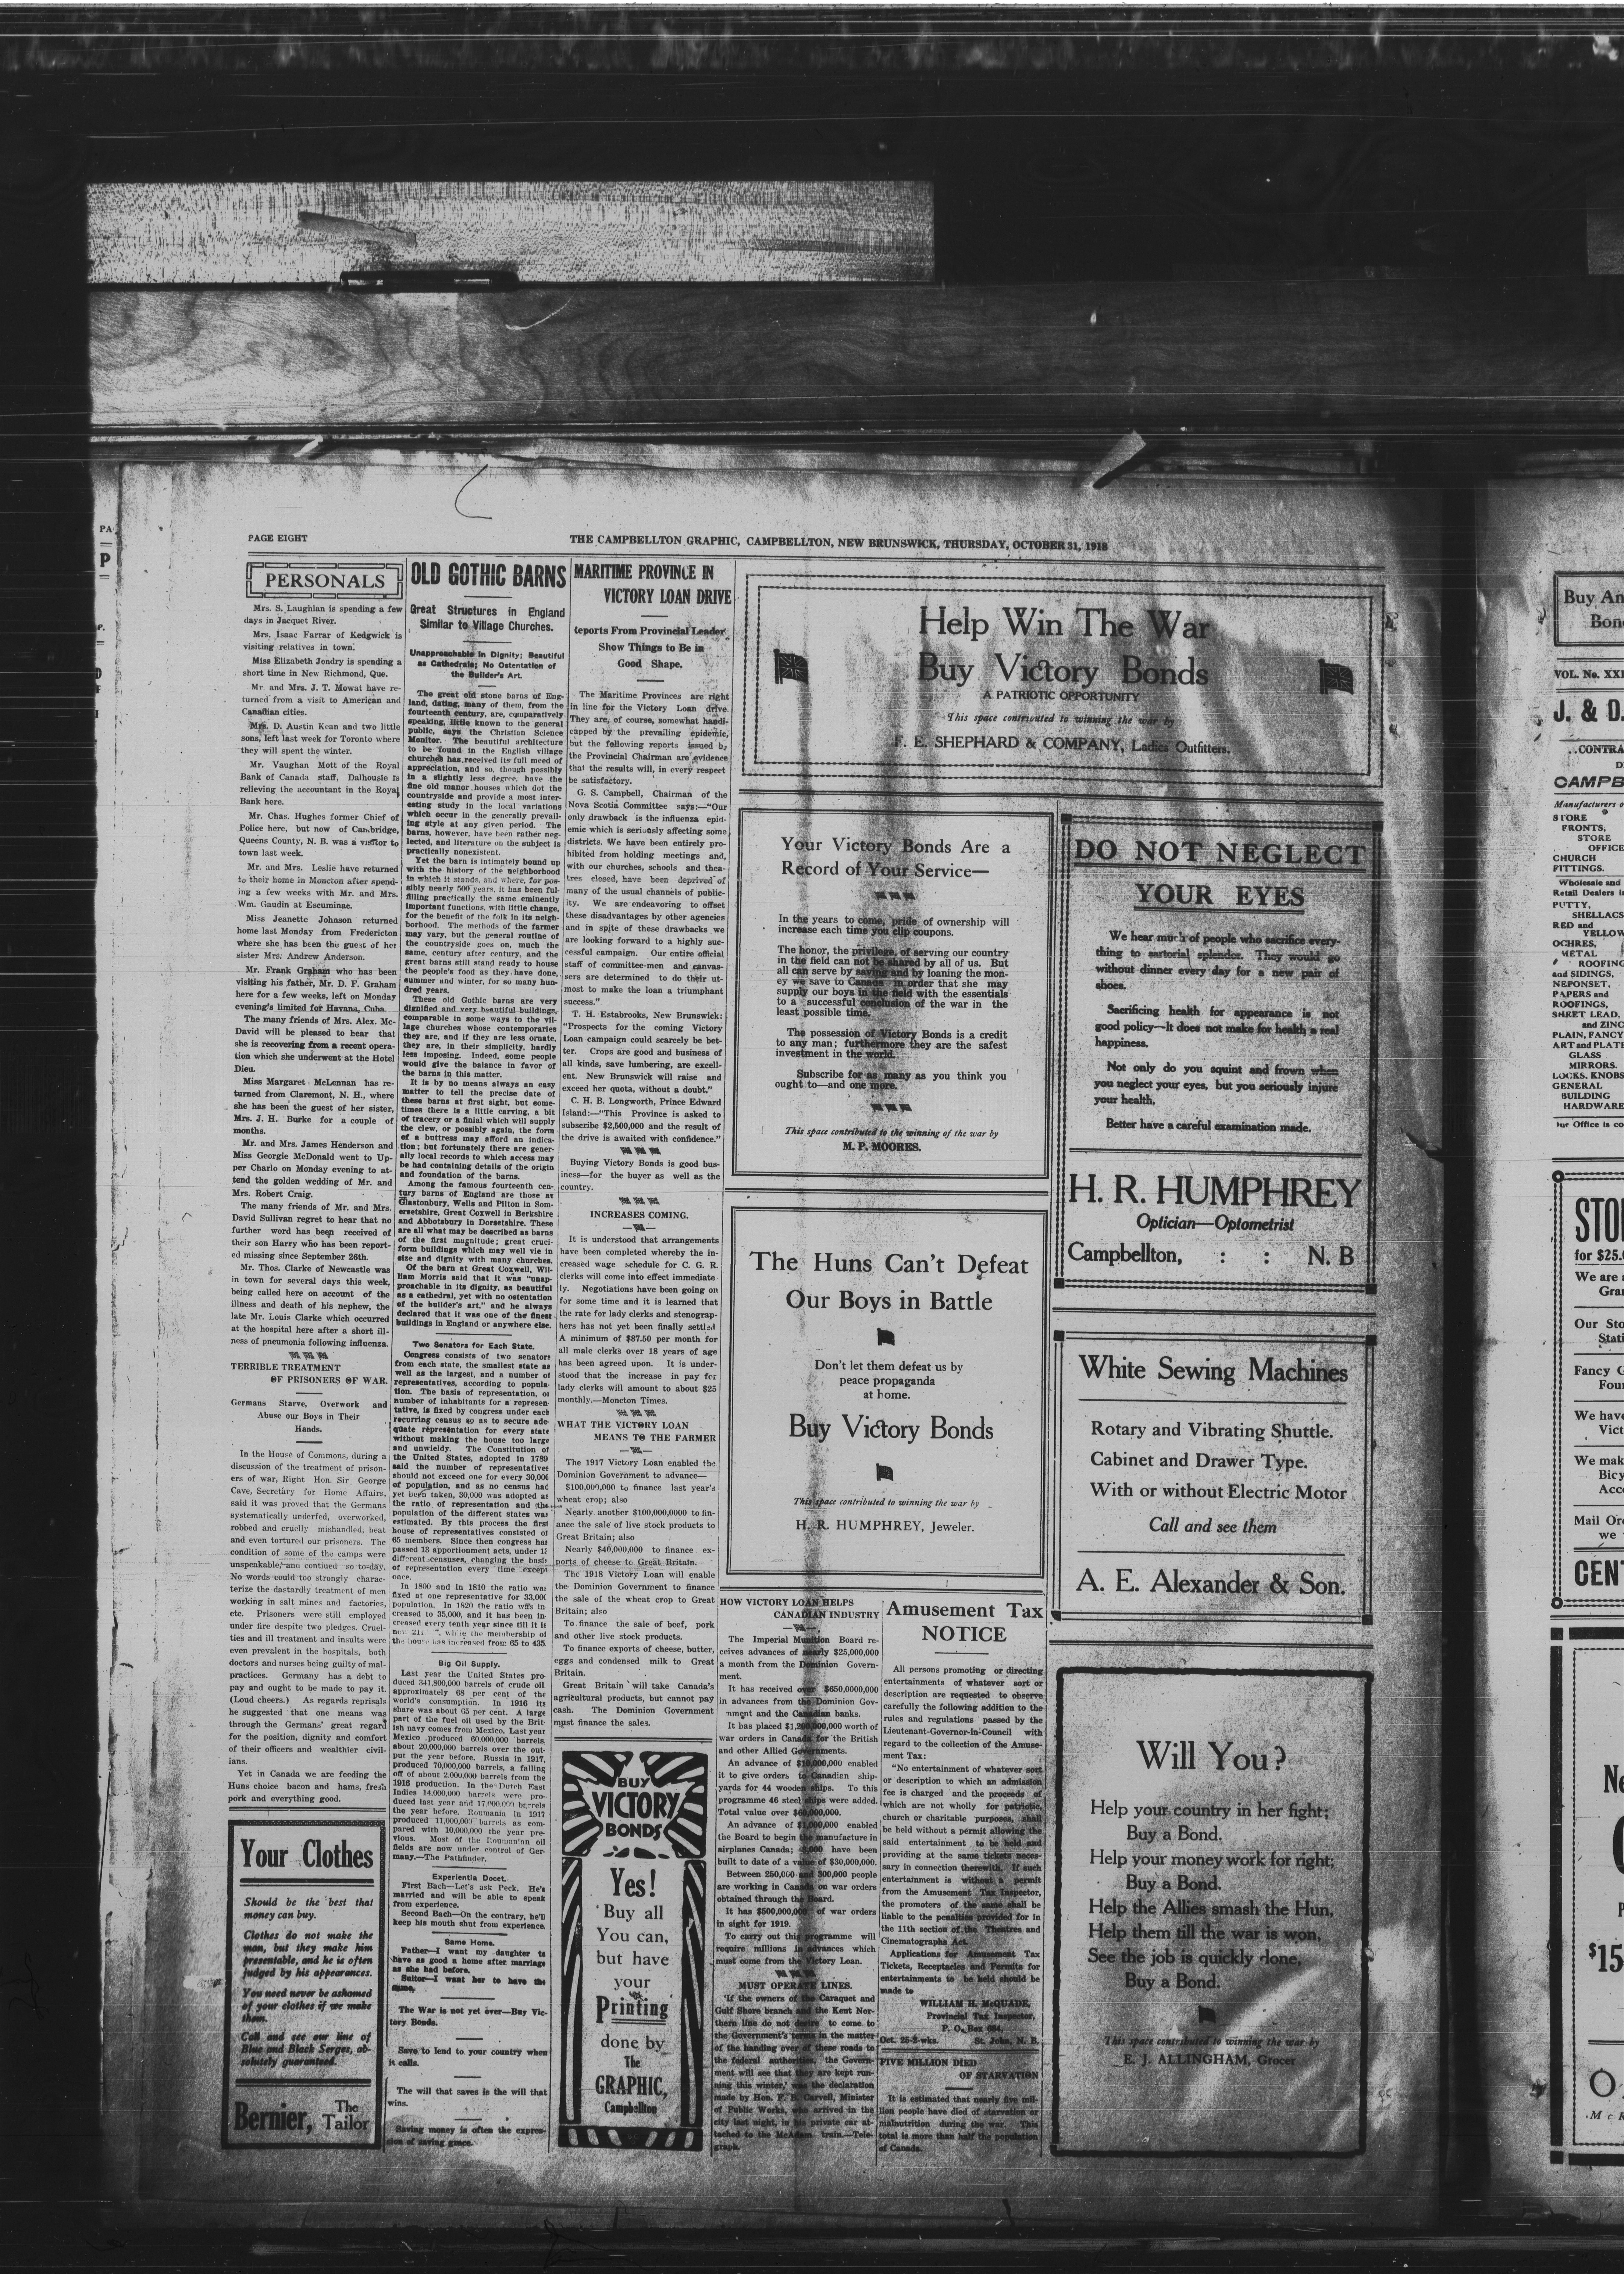 PAGE EIGHT
THE CAMPBELLTON GRAPHIC, CAMPBELLTON, NEW BRUNSWICK, THURSDAY, OCTOBER 31, 1918
PERSONALS
Mrs. S. Laughlan is spending a few
days in Jacquet River.
Mrs. Isaac Farrar of Kedgwick is
visiting relatives in town.
Miss Elizabeth Jondry is spending a
short time in New Richmond, Que.
Mr. and Mrs. J. T. Mowat have re-
turned from a visit to American and
Canadian cities.
Mrs. D. Austin Kean and two little
sons, left last week for Toronto where
they will spent the winter.
Mr. Vaughan Mott of the Royal
Bank of Canada staff, Dalhousie is
relieving the accountant in the Royal
Bank here.
Mr. Chas. Hughes former Chief of
Police here, but now of Cambridge,
Queens County, N. B. was a visitor to
town last week.
Mr. and Mrs. Leslie have returned
to their home in Moncton after spend-
ing a few weeks with Mr. and Mrs.
Wm. Gaudin at Escuminac.
Miss Jeanette Johnson returned
home last Monday from Fredericton
where she has been the guest of her
sister Mrs. Andrew Anderson.
Mr. Frank Graham who has been
visiting his father, Mr. D. F. Graham
here for a few weeks, left on Monday
evening's limited for Havana, Cuba.
The many friends of Mrs. Alex. Mc-
David will be pleased to hear that
she is recovering from a recent opera-
tion which she underwent at the Hotel
Dieu.
Miss Margaret McLennan has re-
turned from Claremont, N. H., where
she has been the guest of her sister,
Mrs. J. H. Burke for a couple of
months.
Mr. and Mrs. James Henderson and
Miss Georgie McDonald went to Up-
per Charlo on Monday evening to at-
tend the golden wedding of Mr. and
Mrs. Robert Craig.
The many friends of Mr. and Mrs.
David Sullivan regret to hear that no
further word has been received of
their son Harry who has been report-
ed missing since September 26th.
Mr. Thos. Clarke of Newcastle was
in town for several days this week,
being called here on account of the
illness and death of his nephew, the
late Mr. Louis Clarke which occurred
at the hospital here after a short ill-
ness of pneumonia following influenza.
TERRIBLE TREATMENT
OF PRISONERS OF WAR.
Germans Starve, Overwork and
Abuse our Boys in Their
Hands.
In the House of Commons, during a
discussion of the treatment of prison-
ers of war, Right Hon. Sir George
Cave, Secretary for Home Affairs,
said it was proved that the Germans
systematically underfed, overworked,
robbed and cruelly mishandled, beat
and even tortured our prisoners. The
condition of some of the camps were
unspeakable, and contiued so to-day.
No words could too strongly charac-
terize the dastardly treatment of men
working in salt mines and factories,
etc. Prisoners were still employed
under fire despite two pledges. Cruel-
ties and ill treatment and insults were
even prevalent in the hospitals, both
doctors and nurses being guilty of mal-
practices. Germany has a debt to
pay and ought to be made to pay it.
(Loud cheers.) As regards reprisals
he suggested that one means was
through the Germans' great regard
for the position, dignity and comfort
of their officers and wealthier civil-
ians.
Yet in Canada we are feeding the
Huns choice bacon and hams, fresh
pork and everything good.
Your Clothes
Should be the best that
money can buy.
Clothes do not make the
man, but they make him
presentable, and he is often
judged by his appearances.
You need never be ashamed
of your clothes if we make
them.
Call and see our line of
Blue and Black Serges, ab-
solutely guaranteed.
Bernier, The Tailor
OLD GOTHIC BARNS
Great Structures in England
Similar to Village Churches.
Unapproachable in Dignity; Beautiful
as Cathedrals; No Ostentation of
the Builder's Art.
The great old stone barns of Eng-
land, dating, many of them, from the
fourteenth century, are, comparatively
speaking, little known to the general
public, says the Christian Science
Monitor. The beautiful architecture
to be found in the English village
churches has received its full meed of
appreciation, and so, though possibly
in a slightly less degree, have the
fine old manor houses which dot the
countryside and provide a most inter-
esting study in the local variations
which occur in the generally prevail-
ing style at any given period. The
barns, however, have been rather neg-
lected, and literature on the subject is
practically nonexistent.
Yet the barn is intimately bound up
with the history of the neighborhood
in which it stands, and where, for pos-
sibly nearly 500 years, it has been ful-
filling practically the same eminently
important functions, with little change,
for the benefit of the folk in its neigh-
borhood. The methods of the farmer
may vary, but the general routine of
the countryside goes on, much the
same, century after century, and the
great barns still stand ready to house
the people's food as they have done,
summer and winter, for so many hun-
dred years.
These old Gothic barns are very
dignified and very beautiful buildings,
comparable in some ways to the vil-
lage churches whose contemporaries
they are, and if they are less ornate,
they are, in their simplicity, hardly
less imposing. Indeed, some people
would give the balance in favor of
the barns in this matter.
It is by no means always an easy
matter to tell the precise date of
these barns at first sight, but some-
times there is a little carving, a bit
of tracery or a finial which will supply
the clew, or possibly again, the form
of a buttress may afford an indica-
tion; but fortunately there are gener-
ally local records to which access may
be had containing details of the origin
and foundation of the barns.
Among the famous fourteenth cen-
tury barns of England are those at
Glastonbury, Wells and Pilton in Som-
ersetshire, Great Coxwell in Berkshire
and Abbotsbury in Dorsetshire. These
are all what may be described as barns
of the first magnitude; great cruci-
form buildings which may well vie in
size and dignity with many churches.
Of the barn at Great Coxwell, Wil-
liam Morris said that it was "unap-
proachable in its dignity, as beautiful
as a cathedral, yet with no ostentation
of the builder's art," and he always
declared that it was one of the finest
buildings in England or anywhere else.
Two Senators for Each State.
Congress consists of two senators
from each state, the smallest state as
well as the largest, and a number of
representatives, according to popula-
tion. The basis of representation, or
number of inhabitants for a represen-
tative, is fixed by congress under each
recurring census so as to secure ade-
quate representation for every state
without making the house too large
and unwieldy. The Constitution of
the United States, adopted in 1789
said the number of representatives
should not exceed one for every 30,000
of population, and as no census had
yet been taken, 30,000 was adopted as
the ratio of representation and the
population of the different states was
estimated. By this process the first
house of representatives consisted of
65 members. Since then congress has
passed 13 apportionment acts, under 13
different censuses, changing the basis
of representation every time except
once.
In 1800 and in 1810 the ratio was
fixed at one representative for 33,000
population. In 1820 the ratio was in-
creased to 35,000, and it has been in-
creased every tenth year since till it is
now while the membership of
the house has increased from 65 to 435.
Big Oil Supply.
Last year the United States pro-
duced 341,800,000 barrels of crude oil,
approximately 68 per cent of the
world's consumption. In 1916 its
share was about 65 per cent. A large
part of the fuel oil used by the Brit-
ish navy comes from Mexico. Last year
Mexico produced 60,000,000 barrels,
about 20,000,000 barrels over the out-
put the year before. Russia in 1917,
produced 70,000,000 barrels, a falling
off of about 2,000,000 barrels from the
1916 production. In the Dutch East
Indies 14,000,000 barrels were pro-
duced last year and 17,000,000 barrels
the year before. Roumania in 1917
produced 11,000,000 barrels as com-
pared with 10,000,000 the year pre-
vious. Most of the Roumanian oil
fields are now under control of Ger-
many.—The Pathfinder.
Experientia Docet.
First Bach—Let's ask Peck. He's
married and will be able to speak
from experience.
Second Bach—On the contrary, he'll
keep his mouth shut from experience.
Same Home.
Father—I want my daughter to
have as good a home after marriage
as she had before.
Suitor—I want her to have the
same.
The War is not yet over—Buy Vic-
tory Bonds.
Save to lend to your country when
it calls.
The will that saves is the will that
wins.
Saving money is often the expres-
sion of saving grace.
MARITIME PROVINCE IN
VICTORY LOAN DRIVE
Reports From Provincial Leader
Show Things to Be in
Good Shape.
The Maritime Provinces are right
in line for the Victory Loan drive.
They are, of course, somewhat handi-
capped by the prevailing epidemic,
but the following reports issued by
the Provincial Chairman are evidence
that the results will, in every respect
be satisfactory.
G. S. Campbell, Chairman of the
Nova Scotia Committee says:—"Our
only drawback is the influenza epid-
emic which is seriously affecting some
districts. We have been entirely pro-
hibited from holding meetings and,
with our churches, schools and thea-
tres closed, have been deprived of
many of the usual channels of public-
ity. We are endeavoring to offset
these disadvantages by other agencies
and in spite of these drawbacks we
are looking forward to a highly suc-
cessful campaign. Our entire official
staff of committee-men and canvas-
sers are determined to do their ut-
most to make the loan a triumphant
success."
T. H. Estabrooks, New Brunswick:
"Prospects for the coming Victory
Loan campaign could scarcely be bet-
ter. Crops are good and business of
all kinds, save lumbering, are excell-
ent. New Brunswick will raise and
exceed her quota, without a doubt."
C. H. B. Longworth, Prince Edward
Island:—"This Province is asked to
subscribe $2,500,000 and the result of
the drive is awaited with confidence."
Buying Victory Bonds is good bus-
iness—for the buyer as well as the
country.
INCREASES COMING.
It is understood that arrangements
have been completed whereby the in-
creased wage schedule for C. G. R.
clerks will come into effect immediate
ly. Negotiations have been going on
for some time and it is learned that
the rate for lady clerks and stenograp-
hers has not yet been finally settled
A minimum of $87.50 per month for
all male clerks over 18 years of age
has been agreed upon. It is under-
stood that the increase in pay for
lady clerks will amount to about $25
monthly.—Moncton Times.
WHAT THE VICTORY LOAN
MEANS TO THE FARMER
The 1917 Victory Loan enabled the
Dominion Government to advance—
$100,000,000 to finance last year's
wheat crop; also
Nearly another $100,000,0000 to fin-
ance the sale of live stock products to
Great Britain; also
Nearly $40,000,000 to finance ex-
ports of cheese to Great Britain.
The 1918 Victory Loan will enable
the Dominion Government to finance
the sale of the wheat crop to Great
Britain; also
To finance the sale of beef, pork
and other live stock products.
To finance exports of cheese, butter,
eggs and condensed milk to Great
Britain.
Great Britain will take Canada's
agricultural products, but cannot pay
cash. The Dominion Government
must finance the sales.
BUY
VICTORY
BONDS
Yes!
Buy all
You can,
but have
your
Printing
done by
The
GRAPHIC,
Campbellton
Help Win The War
Buy Victory Bonds
A PATRIOTIC OPPORTUNITY
This space contributed to winning the war by
F. E. SHEPHARD & COMPANY, Ladies Outfitters.
Your Victory Bonds Are a
Record of Your Service—
In the years to come, pride of ownership will
increase each time you clip coupons.
The honor, the privilege, of serving our country
in the field can not be shared by all of us. But
all can serve by saving and by loaning the mon-
ey we save to Canada in order that she may
supply our boys in the field with the essentials
to a successful conclusion of the war in the
least possible time.
The possession of Victory Bonds is a credit
to any man; furthermore they are the safest
investment in the world.
Subscribe for as many as you think you
ought to—and one more.
This space contributed to the winning of the war by
M. P. MOORES.
The Huns Can't Defeat
Our Boys in Battle
Don't let them defeat us by
peace propaganda
at home.
Buy Victory Bonds
This space contributed to winning the war by
H. R. HUMPHREY, Jeweler.
HOW VICTORY LOAN HELPS
CANADIAN INDUSTRY
The Imperial Munition Board re-
ceives advances of nearly $25,000,000
a month from the Dominion Govern-
ment.
It has received over $650,0000,000
in advances from the Dominion Gov-
nment and the Canadian banks.
It has placed $1,200,000,000 worth of
war orders in Canada for the British
and other Allied Governments.
An advance of $10,000,000 enabled
it to give orders to Canadian ship-
yards for 44 wooden ships. To this
programme 46 steel ships were added.
Total value over $60,000,000.
An advance of $1,000,000 enabled
the Board to begin the manufacture in
airplanes Canada; have been
built to date of a value of $30,000,000.
Between 250,000 and 300,000 people
are working in Canada on war orders
obtained through the Board.
It has $500,000,000 of war orders
in sight for 1919.
To carry out this programme will
require millions in advances which
must come from the Victory Loan.
MUST OPERATE LINES.
'If the owners of the Caraquet and
Gulf Shore branch and the Kent Nor-
thern line do not desire to come to
the Government's terms in the matter
of the handing over of these roads to
the federal authorities, the Govern-
ment will see that they are kept run-
ning this winter,' was the declaration
made by Hon. F. B. Carvell, Minister
of Public Works, who arrived in the
city last night, in his private car at-
tached to the McAdam train.—Tele-
graph.
Amusement Tax
NOTICE
All persons promoting or directing
entertainments of whatever sort or
description are requested to observe
carefully the following addition to the
rules and regulations passed by the
Lieutenant-Governor-in-Council with
regard to the collection of the Amuse-
ment Tax:
"No entertainment of whatever sort
or description to which an admission
fee is charged and the proceeds of
which are not wholly for patriotic,
church or charitable purposes, shall
be held without a permit allowing the
said entertainment to be held and
providing at the same tickets neces-
sary in connection therewith. If such
entertainment is without a permit
from the Amusement Tax Inspector,
the promoters of the same shall be
liable to the penalties provided for in
the 11th section of the Theatres and
Cinematographs Act.
Applications for Amusement Tax
Tickets, Receptacles and Permits for
entertainments to be held should be
made to
WILLIAM H. McQUADE,
Provincial Tax Inspector,
P. O. Box 684,
Oct. 25-2-wks. St. John, N. B.
FIVE MILLION DIED
OF STARVATION
It is estimated that nearly five mil-
lion people have died of starvation or
malnutrition during the war. This
total is more than half the population
of Canada.
DO NOT NEGLECT
YOUR EYES
We hear much of people who sacrifice every-
thing to sartorial splendor. They would go
without dinner every day for a new pair of
shoes.
Sacrificing health for appearance is not
good policy—It does not make for health a real
happiness.
Not only do you squint and frown when
you neglect your eyes, but you seriously injure
your health.
Better have a careful examination made.
H. R. HUMPHREY
Optician—Optometrist
Campbellton, : : N. B
White Sewing Machines
Rotary and Vibrating Shuttle.
Cabinet and Drawer Type.
With or without Electric Motor
Call and see them
A. E. Alexander & Son.
Will You?
Help your country in her fight;
Buy a Bond.
Help your money work for right;
Buy a Bond.
Help the Allies smash the Hun,
Help them till the war is won,
See the job is quickly done,
Buy a Bond.
This space contributed to winning the war by
E. J. ALLINGHAM, Grocer
Buy An
Bon
VOL. No. XXI
J. & D.
..CONTRA
CAMPB
Manufacturers o
STORE
FRONTS,
STORE
OFFICE
CHURCH
FITTINGS.
Wholesale and
Retail Dealers in
PUTTY,
SHELLACS
RED and
YELLOW
OCHRES,
METAL
ROOFING
and SIDINGS,
NEPONSET,
PAPERS and
ROOFINGS,
SHEET LEAD,
and ZINC
PLAIN, FANCY
ART and PLATE
GLASS
MIRRORS.
LOCKS, KNOBS
GENERAL
BUILDING
HARDWARE
Our Office is co
STO
for $25.
We are
Gra
Our Sto
Stati
Fancy G
Four
We have
Vict
We mak
Bicy
Acc
Mail Or
we
CENT
Ne
$15
McR